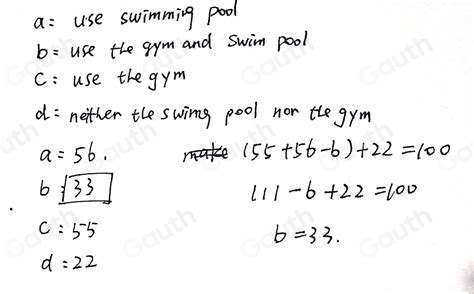 a: use swimming pool
b: use the gym and swim pool
C: use the gym
d: neither the swimg pool nor the gym
a = 56.
make (55+56-b)+22=100
b: 33
111-b+22=100
C: 55
b=33.
d: 22
Gauth